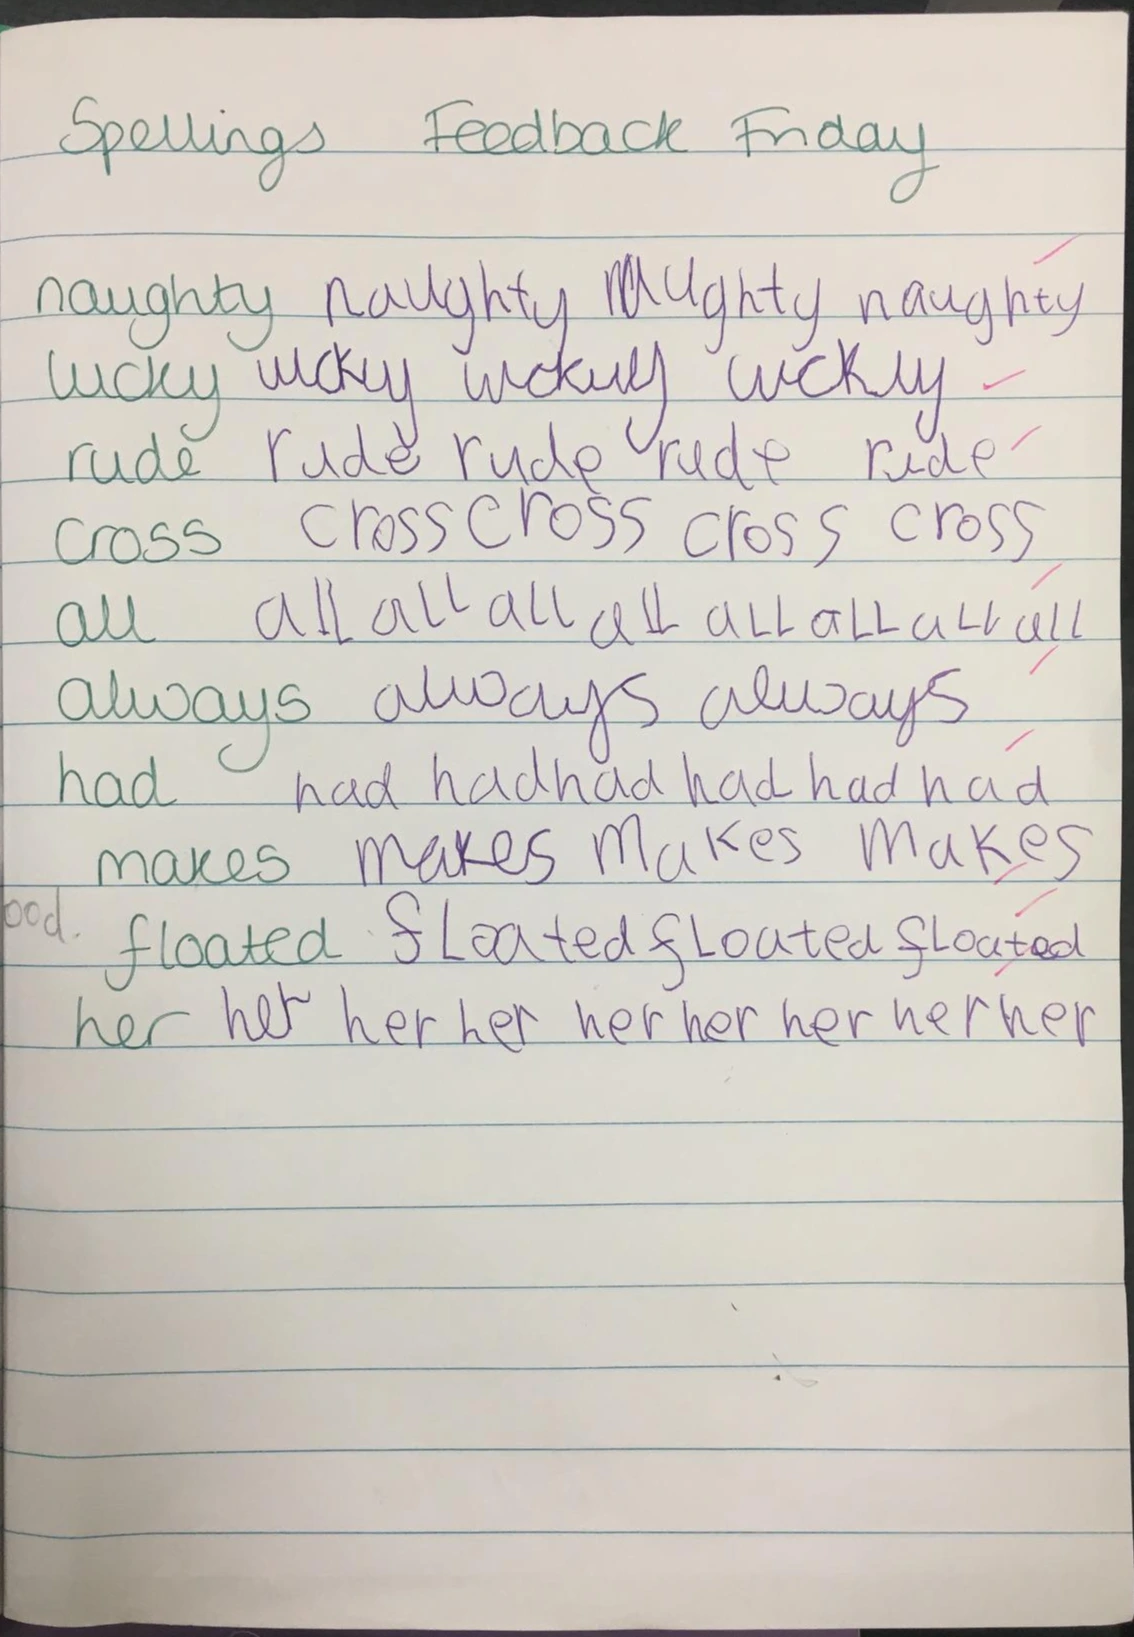 Spellings Feedback Friday
naughty naughty naughty naughty
lucky ucky uckuy uckly
rude rude rude rude rude
cross cross cross cross cross
all all all all all all all all all
always always always
had had had had had had had
makes makes makes makes
ood.
floated floated floated floated
her her her her her her her her her